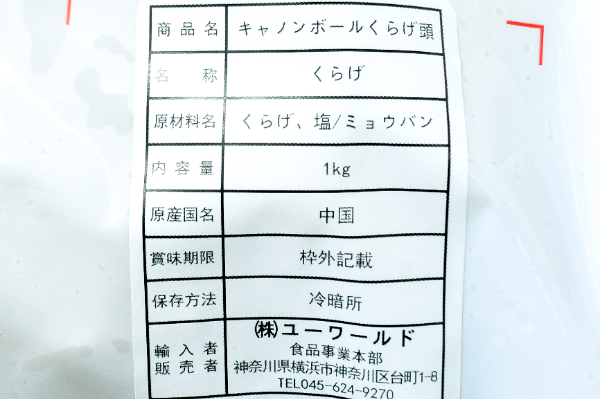 商品名 キャノンボールくらげ頭
名称 くらげ
原材料名 くらげ、塩/ミョウバン
内容量 1kg
原産国名 中国
賞味期限 枠外記載
保存方法 冷暗所
輸入者 ㈱ユーワールド
販売者 食品事業本部
神奈川県横浜市神奈川区台町1-8
TEL045-624-9270